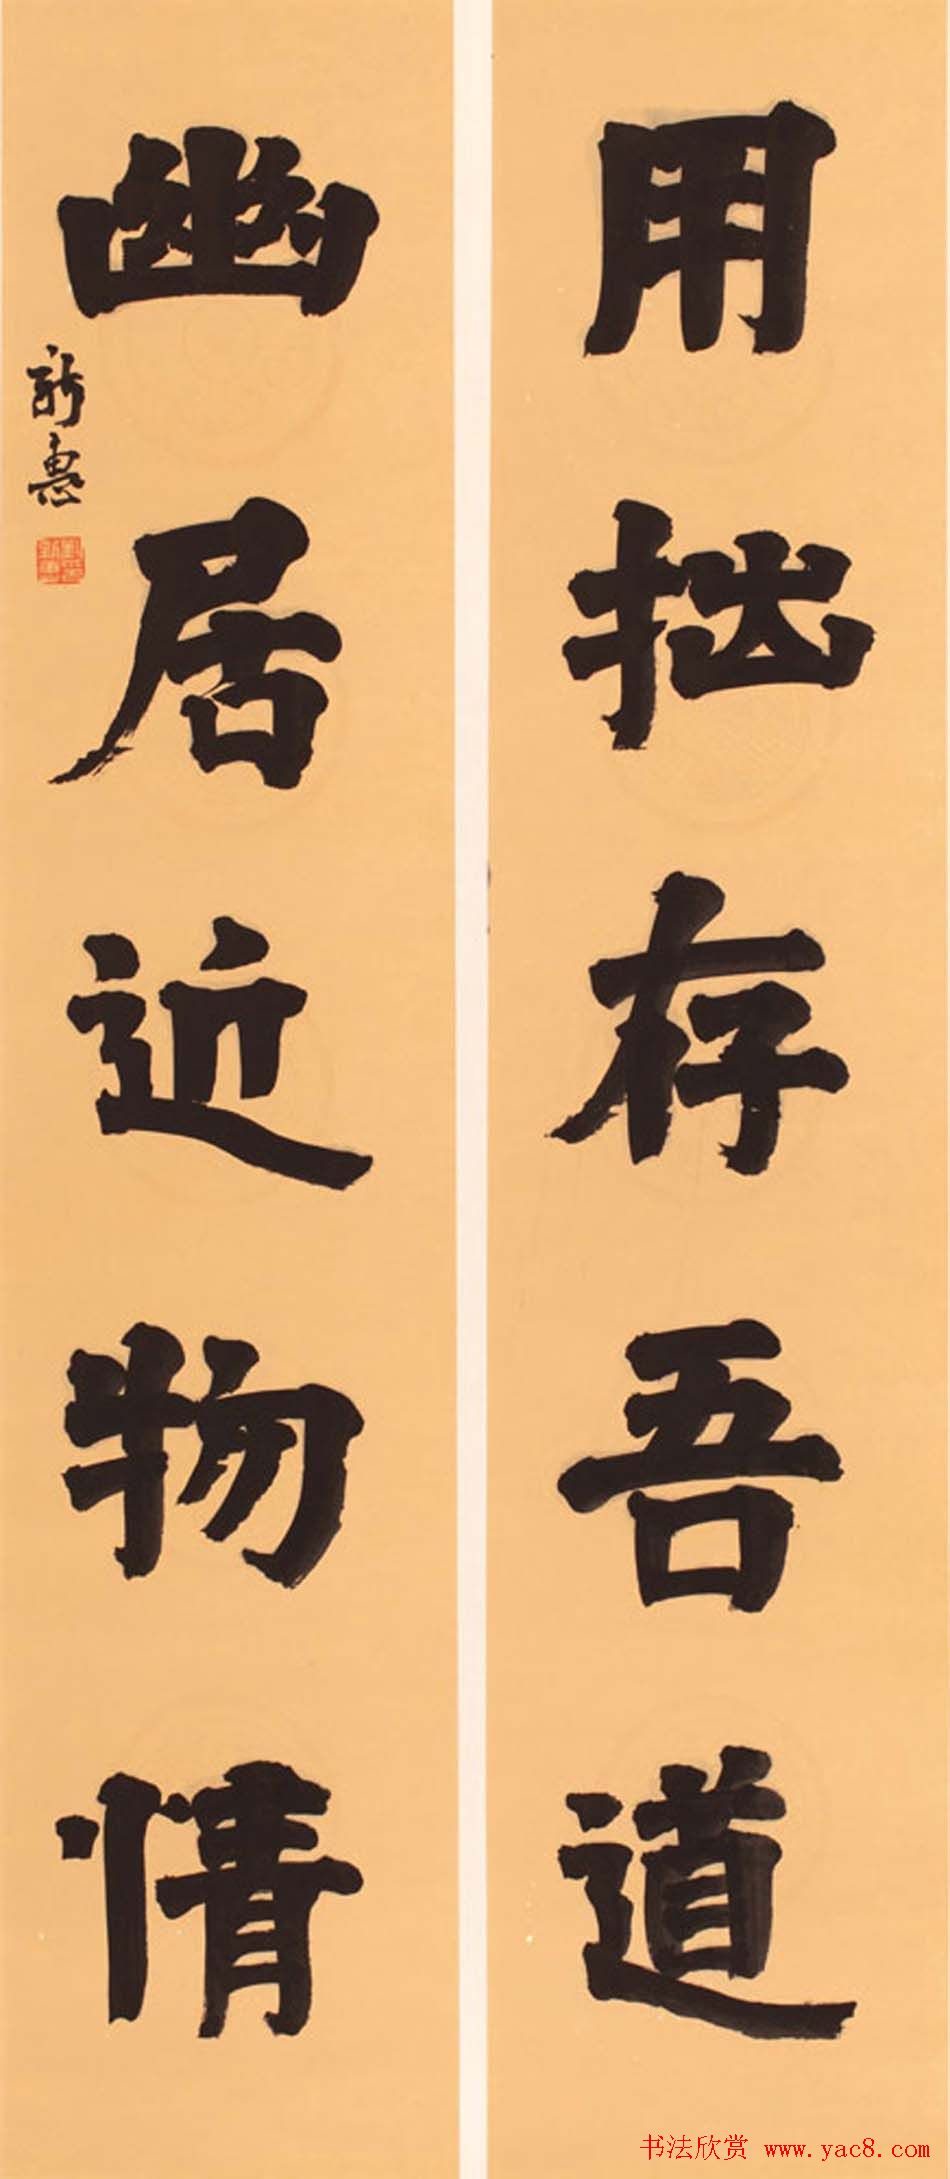 用拙存吾道
幽居近物情
新惠
书法欣赏 www.yac8.com